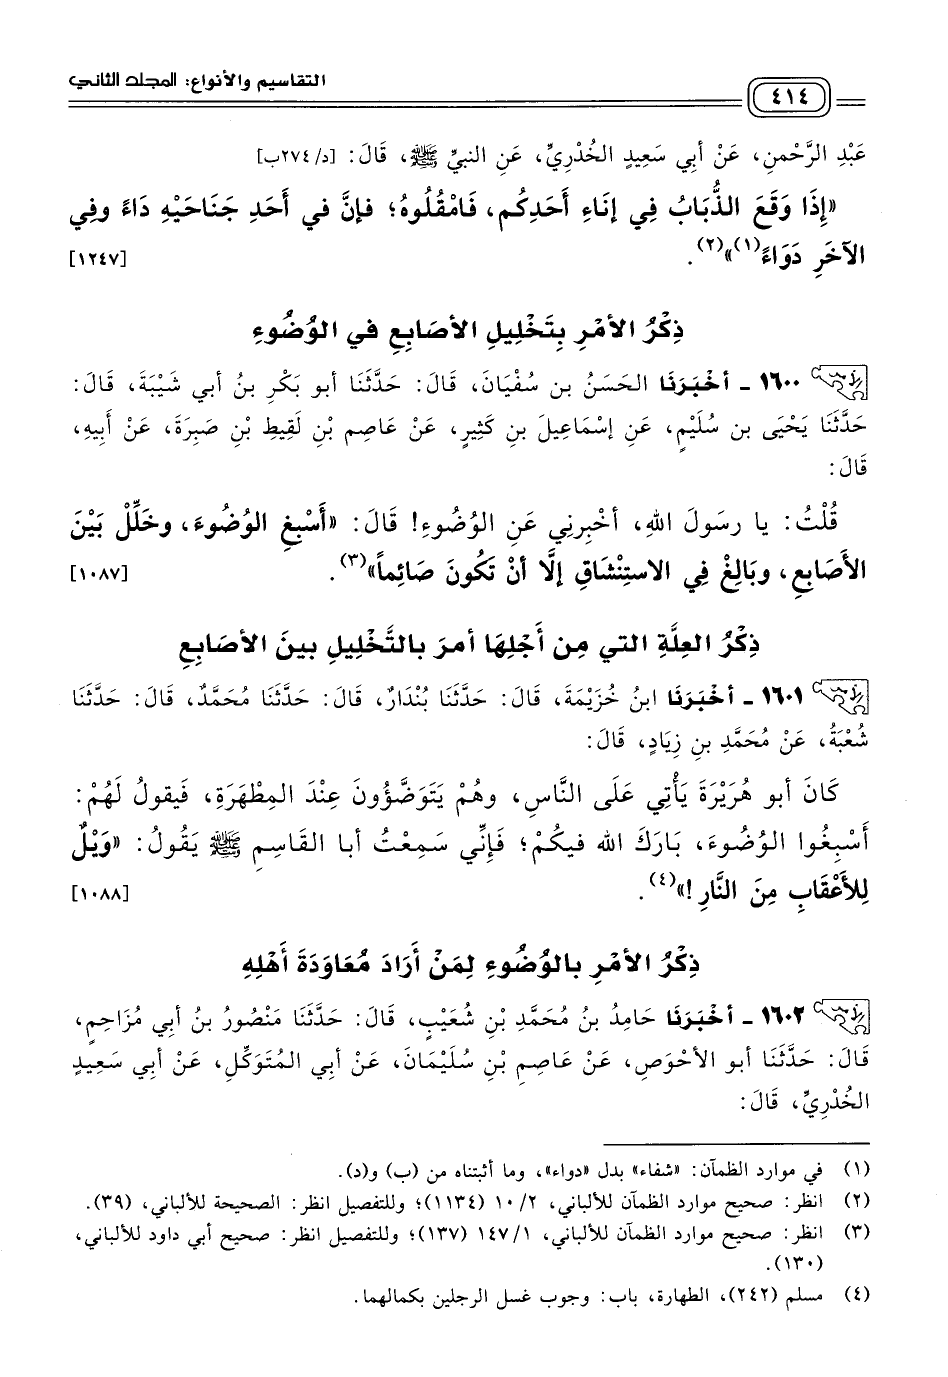 التقاسيم والأنواع: المجلد الثاني
٤١٤
عَبْدِ الرَّحْمنِ، عَنْ أبي سَعِيدٍ الخُدْرِيِّ، عَنِ النبيِّ ﷺ، قَالَ: [د/٢٧٤ب]
«إِذَا وَقَعَ الذُّبَابُ فِي إنَاءِ أَحَدِكُم، فَامْقُلُوهُ؛ فإنَّ في أَحَدِ جَنَاحَيْهِ دَاءً وفِي
الآخَرِ دَوَاءً(١)»(٢). [١٢٤٧]
ذِكْرُ الأمْرِ بِتَخْلِيلِ الأصَابِعِ في الوُضُوءِ
١٦٠٠ ـ أخْبَرَنَا الحَسَنُ بن سُفْيَانَ، قَالَ: حَدَّثَنَا أبو بَكْرِ بنُ أبي شَيْبَةَ، قَالَ:
حَدَّثَنَا يَحْيَى بن سُلَيْمٍ، عَنِ إسْمَاعِيلَ بنِ كَثِيرٍ، عَنْ عَاصِمِ بْنِ لَقِيطِ بْنِ صَبِرَةَ، عَنْ أبِيهِ،
قَالَ:
قُلْتُ: يا رسَولَ اللهِ، أخْبِرنِي عَنِ الوُضُوءِ! قَالَ: «أَسْبِغِ الوُضُوءَ، وخَلِّلْ بَيْنَ
الأَصَابِعِ، وبَالِغْ فِي الاستِنْشَاقِ إلَّا أنْ تَكُونَ صَائِماً»(٣). [١٠٨٧]
ذِكْرُ العِلَّةِ التي مِن أَجْلِهَا أمرَ بالتَّخْلِيلِ بينَ الأصَابِعِ
١٦٠١ ـ أخْبَرَنَا ابنُ خُزَيْمَةَ، قَالَ: حَدَّثَنَا بُنْدَارٌ، قَالَ: حَدَّثَنَا مُحَمَّدٌ، قَالَ: حَدَّثَنَا
شُعْبَةُ، عَنْ مُحَمَّدِ بنِ زِيَادٍ، قَالَ:
كَانَ أبو هُرَيْرَةَ يَأْتِي عَلَى النَّاسِ، وهُمْ يَتَوَضَّؤُونَ عِنْدَ المِطْهَرَةِ، فَيقولُ لَهُمْ:
أَسْبِغُوا الوُضُوءَ، بَارَكَ الله فيكُمْ؛ فَإنِّي سَمِعْتُ أبا القَاسِمِ ﷺ يَقُولُ: «وَيْلٌ
لِلأَعْقَابِ مِنَ النَّارِ!»(٤). [١٠٨٨]
ذِكْرُ الأمْرِ بالوُضُوءِ لِمَنْ أَرَادَ مُعَاوَدَةَ أَهْلِهِ
١٦٠٢ ـ أخْبَرَنَا حَامِدُ بنُ مُحَمَّدِ بْنِ شُعَيْبٍ، قَالَ: حَدَّثَنَا مَنْصُورُ بنُ أبي مُزَاحِمٍ،
قَالَ: حَدَّثَنَا أبو الأحْوَصِ، عَنْ عَاصِمِ بْنِ سُلَيْمَانَ، عَنْ أبي المُتَوَكِّلِ، عَنْ أبي سَعِيدٍ
الخُدْرِيِّ، قَالَ:
(١) في موارد الظمآن: «شفاء» بدل «دواء»، وما أثبتناه من (ب) و(د).
(٢) انظر: صحيح موارد الظمآن للألباني، ٢/ ١٠ (١١٣٤)؛ وللتفصيل انظر: الصحيحة للألباني، (٣٩).
(٣) انظر: صحيح موارد الظمآن للألباني، ١/ ١٤٧ (١٣٧)؛ وللتفصيل انظر: صحيح أبي داود للألباني،
(١٣٠).
(٤) مسلم (٢٤٢)، الطهارة، باب: وجوب غسل الرجلين بكمالهما.